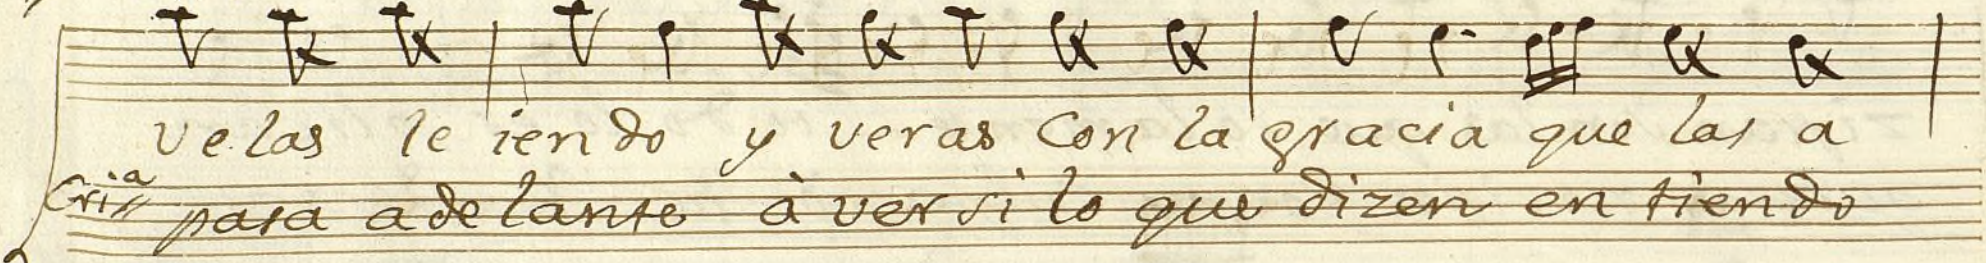 ve las le iendo y veras Con la gracia que las a
Criª pasa adelante à ver si lo que dizen entiendo